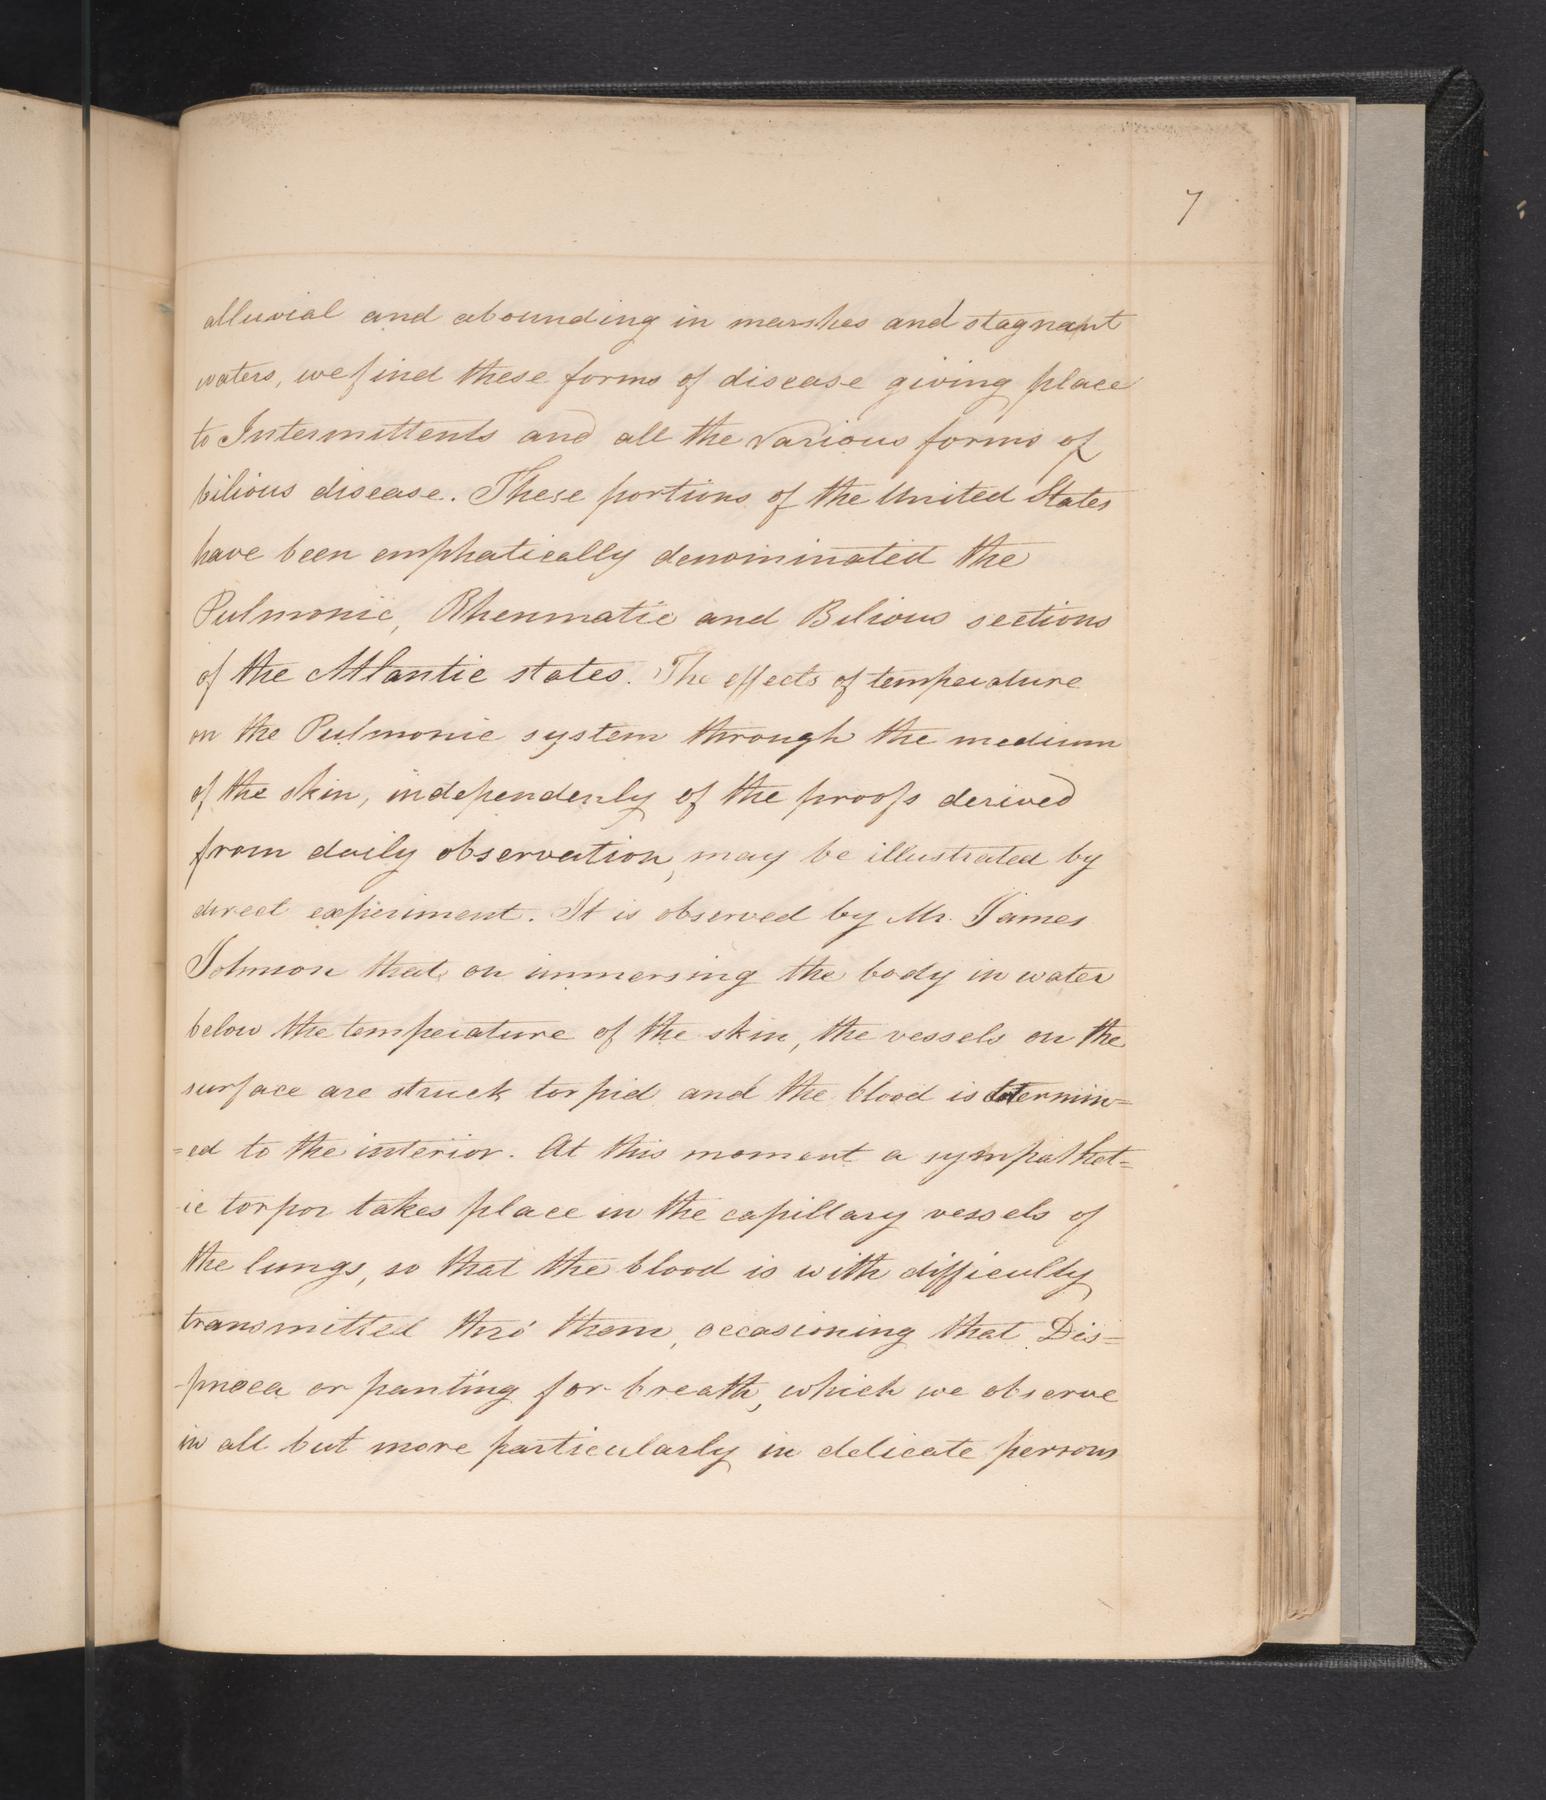 7
alluvial and abounding in marshes and stagnant
waters, we find these forms of disease giving place
to Intermittents and all the various forms of
bilious disease. These portions of the United States
have been emphatically denominated the
Pulmonic, Rheumatic and Bilious sections
of the Atlantic states. The effects of temperature
on the Pulmonic system through the medium
of the skin, independenly of the proofs derived
from daily observation, may be illustrated by
direct experiment. It is observed by Mr. James
Johnson that on immersing the body in water
below the temperature of the skin, the vessels on the
surface are struck torpid and the blood is determin=
=ed to the interior. At this moment a sympathet=
-ic torpor takes place in the capillary vessels of
the lungs, so that the blood is with difficulty
transmitted thro' them, occasioning that Dis=
-pnoea or panting for breath, which we observe
in all but more particularly in delicate persons